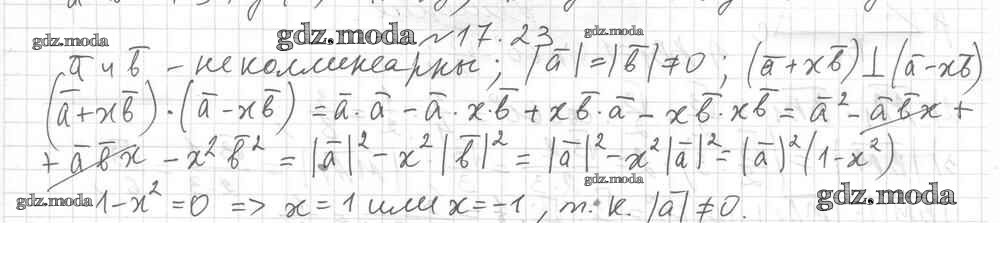 gdz.moda gdz.moda №17.23 gdz.moda
a̅ и b̅ - не коллинеарны; |a̅|=|b̅|≠0; (a̅+xb̅)⊥(a̅-xb̅)
(a̅+xb̅)·(a̅-xb̅) = a̅·a̅ - a̅·x·b̅ + xb̅·a̅ - xb̅·xb̅ = a̅² - a̅b̅x +
+ a̅b̅x - x²b̅² = |a̅|² - x²·|b̅|² = |a̅|² - x²|a̅|² = |a̅|²(1-x²)
gdz.moda
gdz.moda 1-x²=0 => x=1 или x=-1, т.к. |a̅|≠0. gdz.moda